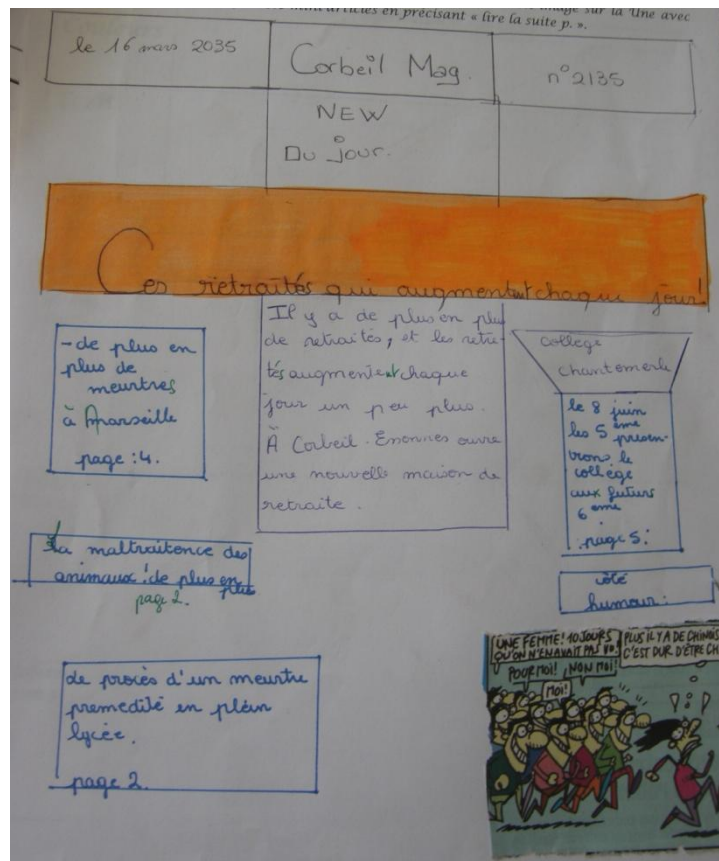 mini articles en précisant « lire la suite p. ».
image sur la Une avec
le 16 mars 2035
Corbeil Mag.
n°2135
NEW
Du jour.
Ces retraités qui augmentent chaque jour!
- de plus en
plus de
meurtres
à Marseille
page : 4.
Il y a de plus en plus
de retraités, et les retrai-
tés augmentent chaque
jour un peu plus.
À Corbeil-Essonnes ouvre
une nouvelle maison de
retraite.
college
chantemerle
le 8 juin
les 5 ème présen-
trons le
collège
aux futurs
6 ème
page 5.
La maltraitence des
animaux! de plus en
plus
page 2.
côté
humour:
de procès d'un meurtre
premedité en plein
lycée.
page 2.
UNE FEMME! 10 JOURS
QU'ON N'EN AVAIT PAS VU!
POUR MOI!
NON MOI!
MOI!
PLUS IL Y A DE CHINOIS
C'EST DUR D'ÊTRE